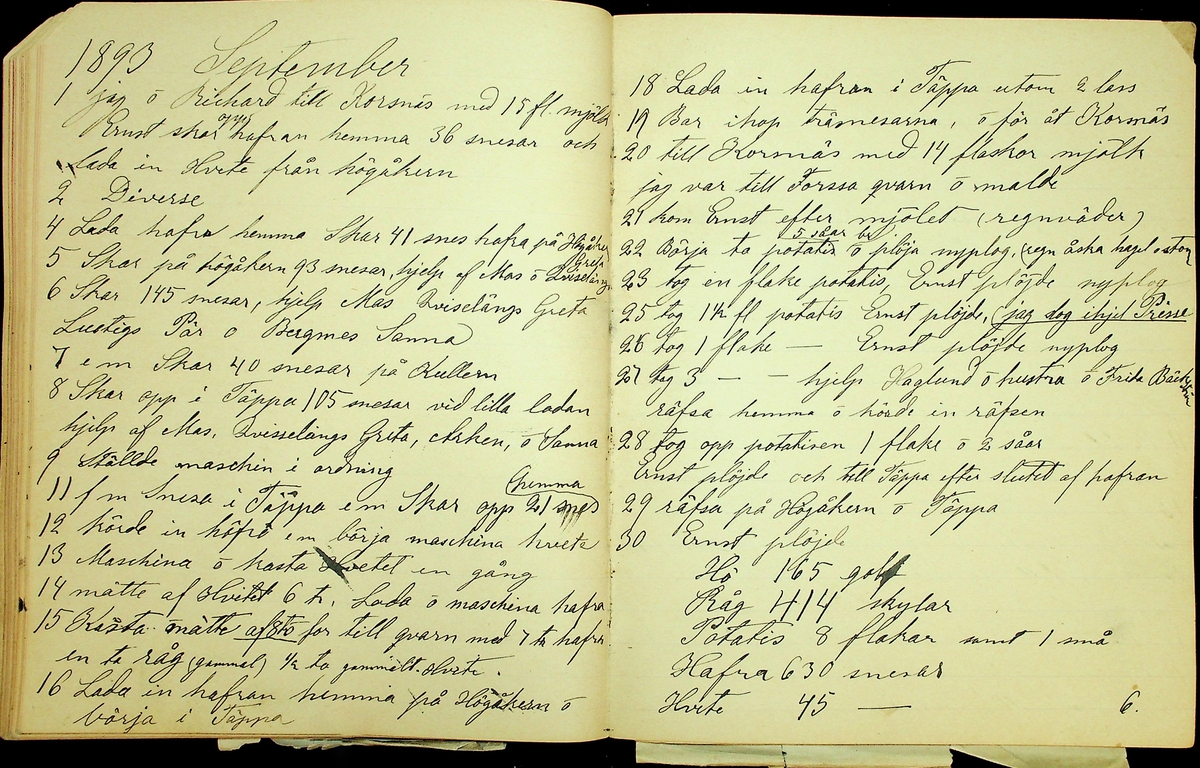 1893 September
1 jag ō Richard till Korsnäs med 15 fl. mjölk
Ernst skar opp hafran hemma 36 snesar och
lada in Hvite från högåkern
2 Diverse
4 Lada hafra hemma Skar 41 snes hafra på Högåker
5 Skar på högåkern 93 snesar, hjelp af Mas ō Qviselängs Greta
6 Skar 145 snesar, hjelp Mas Qviselängs Greta
Lustigs Pär o Bergmes Sanna
7 e m Skar 40 snesar på Kullern
8 Skar opp i Täppa 105 snesar vid lilla ladan
hjelp af Mas, Qvisselängs Greta, Anken, ō Sanna
9 Ställde maschin i ordning
11 f m Snesa i Täppa e m Skar opp 21 snes hemma
12 körde in höfrö em börja maschina hvete
13 Maschina ō kasta Hvetet en gång
14 mätte af Hvitet 6 tr. Lada ō maschina hafra
15 Kasta mätte af 8 to for till qvarn med 7 tr hafra
en ta råg (gammal) ½ ta gammalt Hvite.
16 Lada in hafran hemma på Högåkern ō
börja i Täppa
18 Lada in hafran i Täppa utom 2 lass
19 Bar ihop trämesarna, ō for åt Korsnäs
20 till Korsnäs med 14 flaskor mjölk
jag var till Forssa qvarn ō malde
21 kom Ernst efter mjölet (regnväder)
22 Börja ta potatis 5 såar ō plöja nyplog, (regn åska hagl o storm
23 tog en flake potatis, Ernst plöjde nyplog
25 tog 1½ fl potatis Ernst plöjde, (jag slog ihjel Prisse
26 tog 1 flake — Ernst plöjde nyplog
27 tog 3 — – hjelp Haglund ō hustra ō Frita Bäck
räfsa hemma ō körde in räfsen
28 tog opp potatisen 1 flake ō 2 såar
Ernst plöjde och till Täppa efter slutet af hafran
29 räfsa på Högåkern ō Täppa
30 Ernst plöjde
Hö 165 golf
Råg 414 skylar
Potatis 8 flakar samt 1 små
Hafra 630 snesar
Hvite 45 — 6.